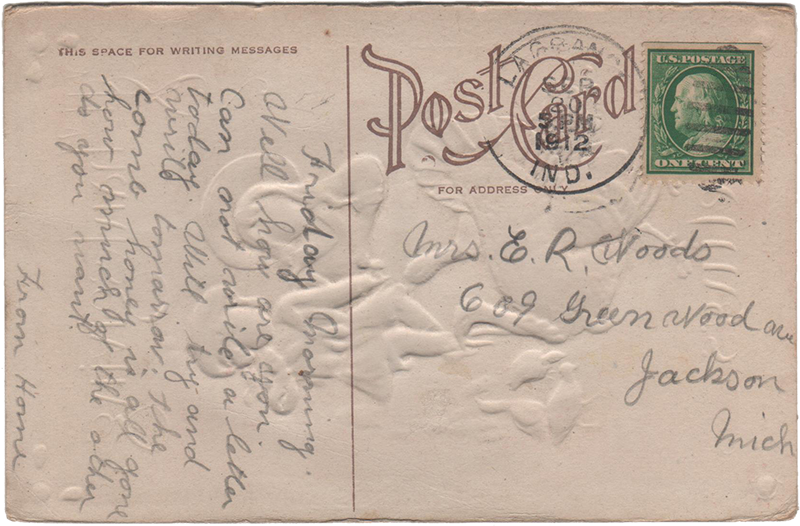 THIS SPACE FOR WRITING MESSAGES
Post Card
FOR ADDRESS ONLY
LAGRANGE
SEP
20
5 PM
1912
IND.
U.S. POSTAGE
ONE CENT
Friday Morning.
Well how are you.
Can not write a letter
today. Will try and
write tomorrow. The
comb honey is all gone
how much of the other
do you want.
From Home
Mrs. E. R. Woods
689 Greenwood ave
Jackson
Mich